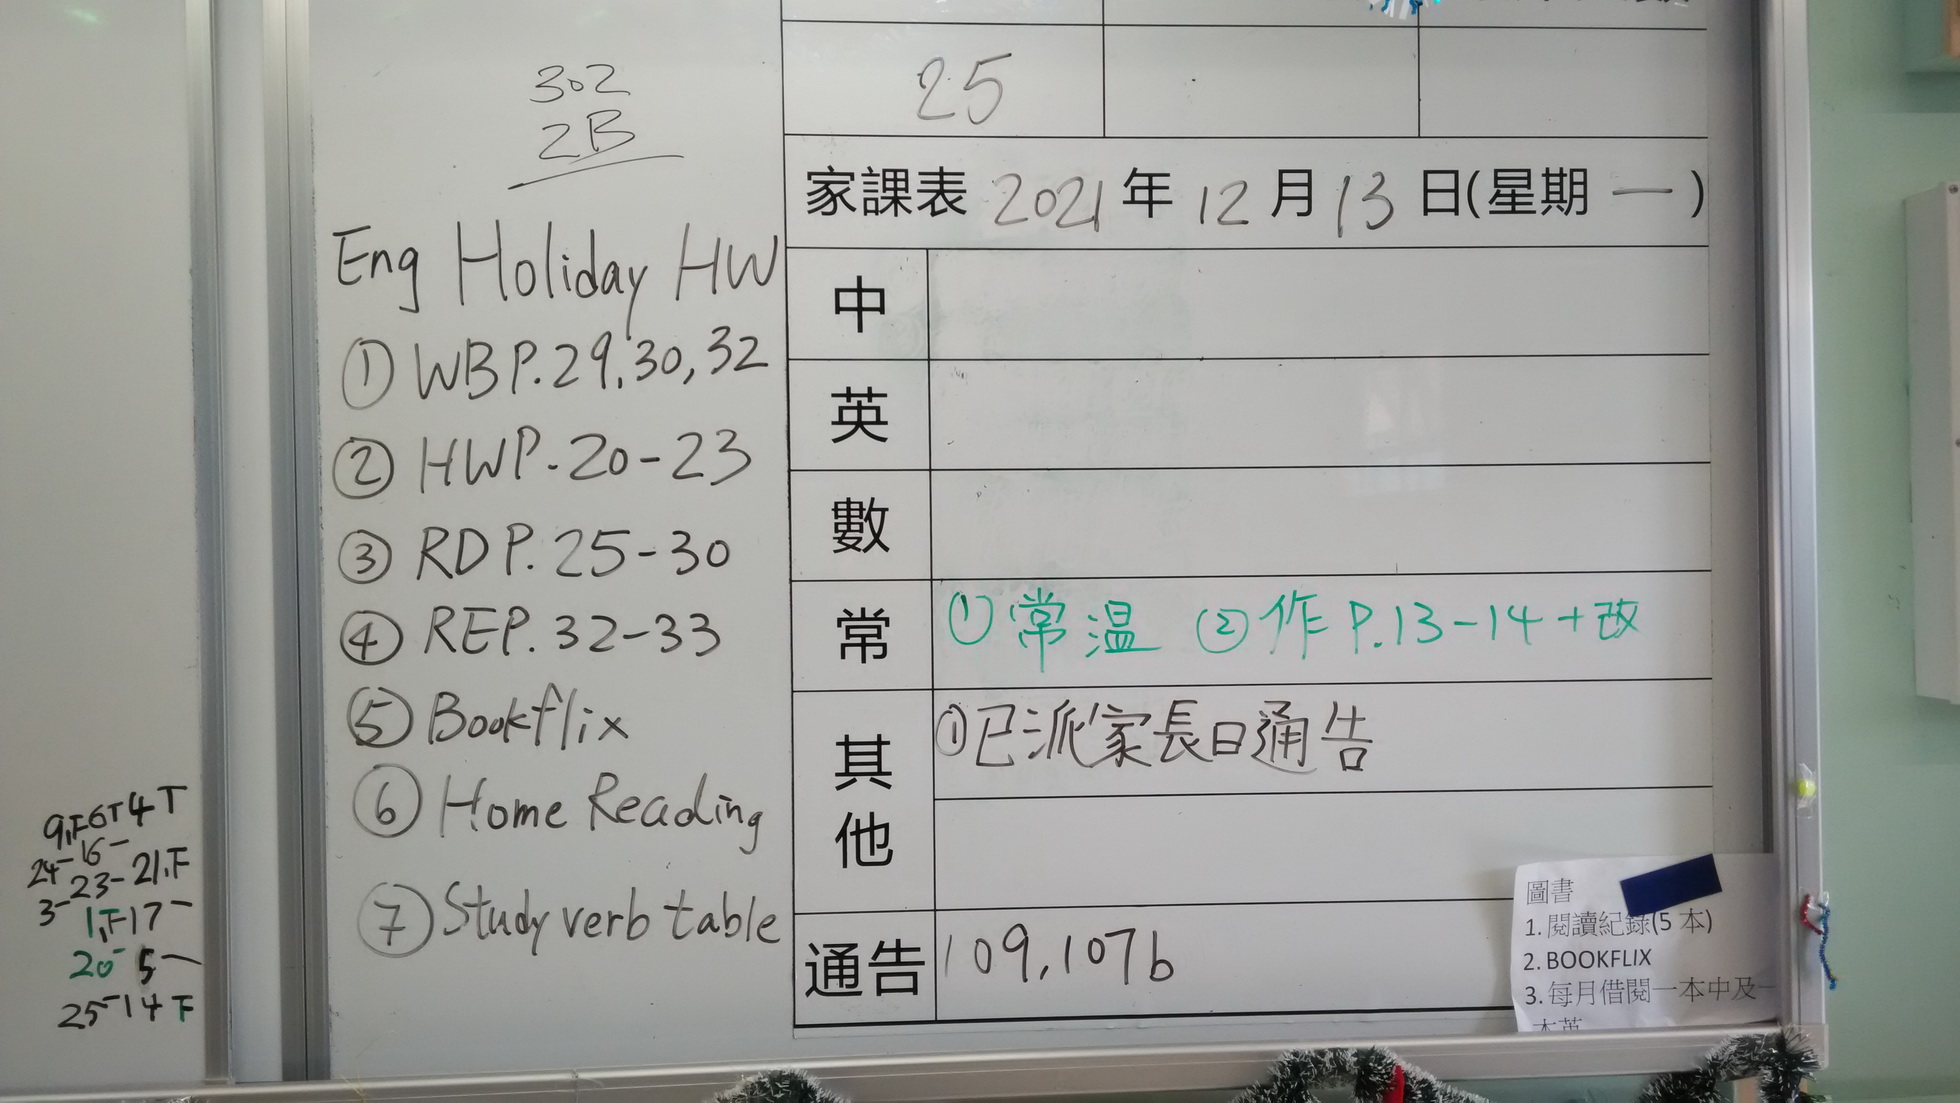 302
2B
Eng Holiday HW
① WB P.29,30,32
② HW P.20-23
③ RD P.25-30
④ RE P.32-33
⑤ Bookflix
⑥ Home Reading
⑦ Study verb table
25
家課表 2021 年 12 月 13 日(星期 一)
中
英
數
常 ①常溫 ②作 P.13-14+改
其他 ①已派家長日通告
通告 109,107b
圖書
1. 閱讀紀錄(5 本)
2. BOOKFLIX
3. 每月借閱一本中及一
本英
25-14